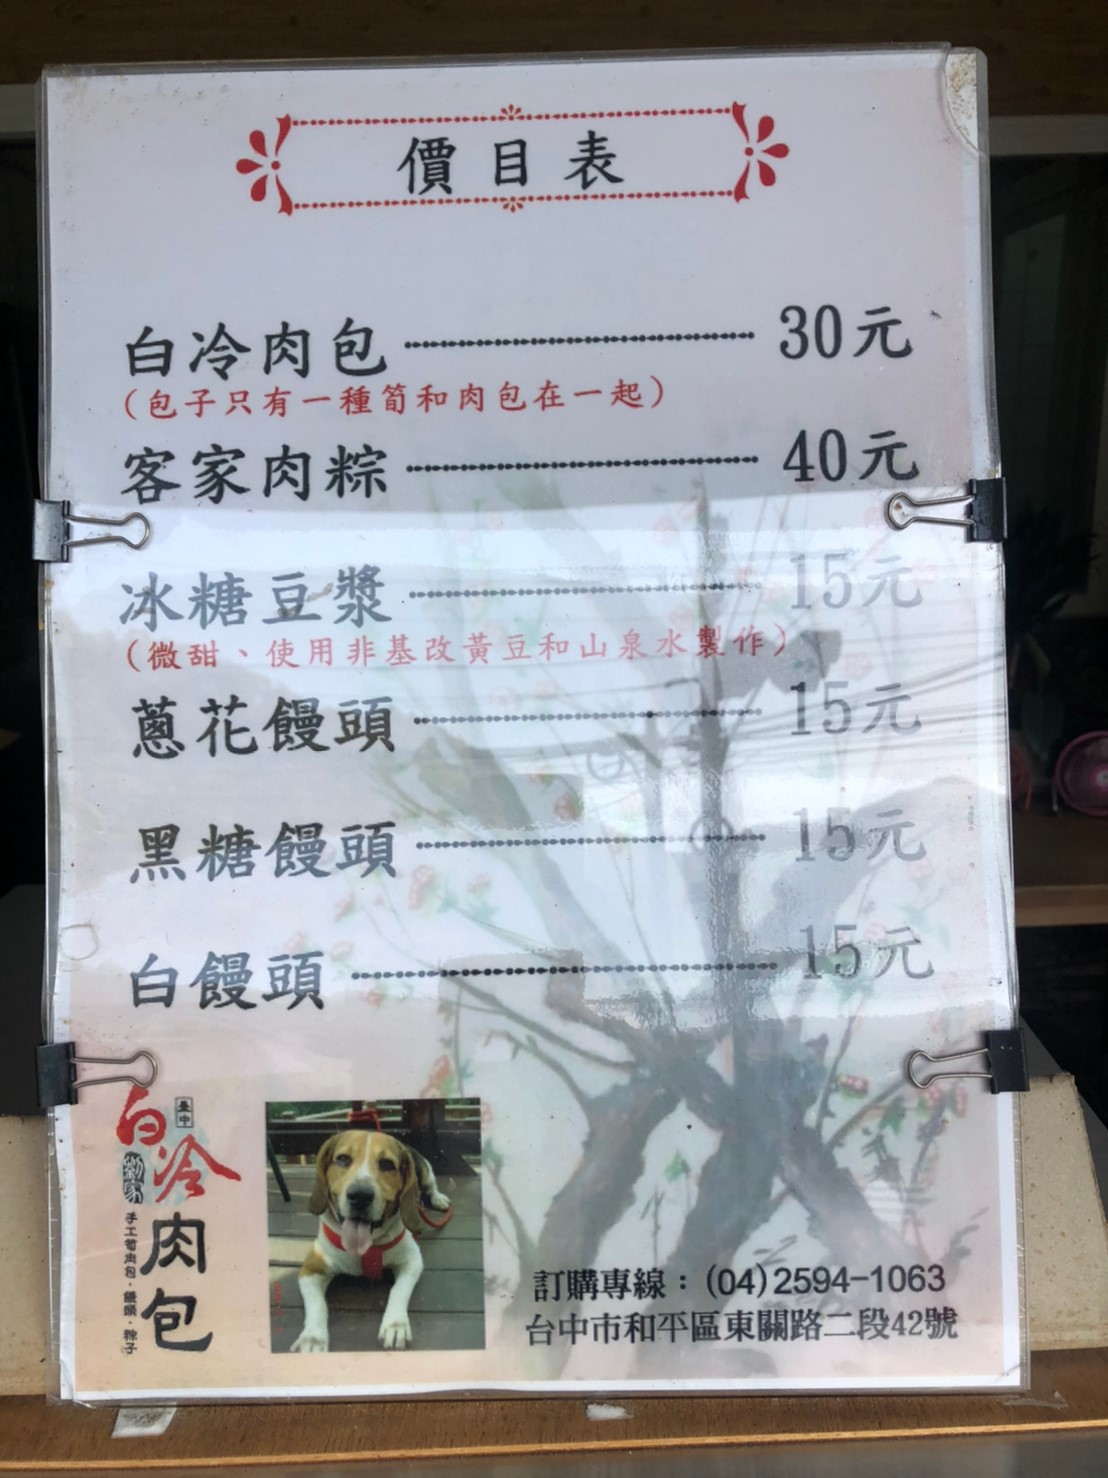 價目表
白冷肉包 30元
(包子只有一種筍和肉包在一起)
客家肉粽 40元
冰糖豆漿 15元
(微甜、使用非基改黃豆和山泉水製作)
蔥花饅頭 15元
黑糖饅頭 15元
白饅頭 15元
臺中
白冷
劉家
肉包
手工筍肉包·饅頭·粽子
訂購專線：(04)2594-1063
台中市和平區東關路二段42號